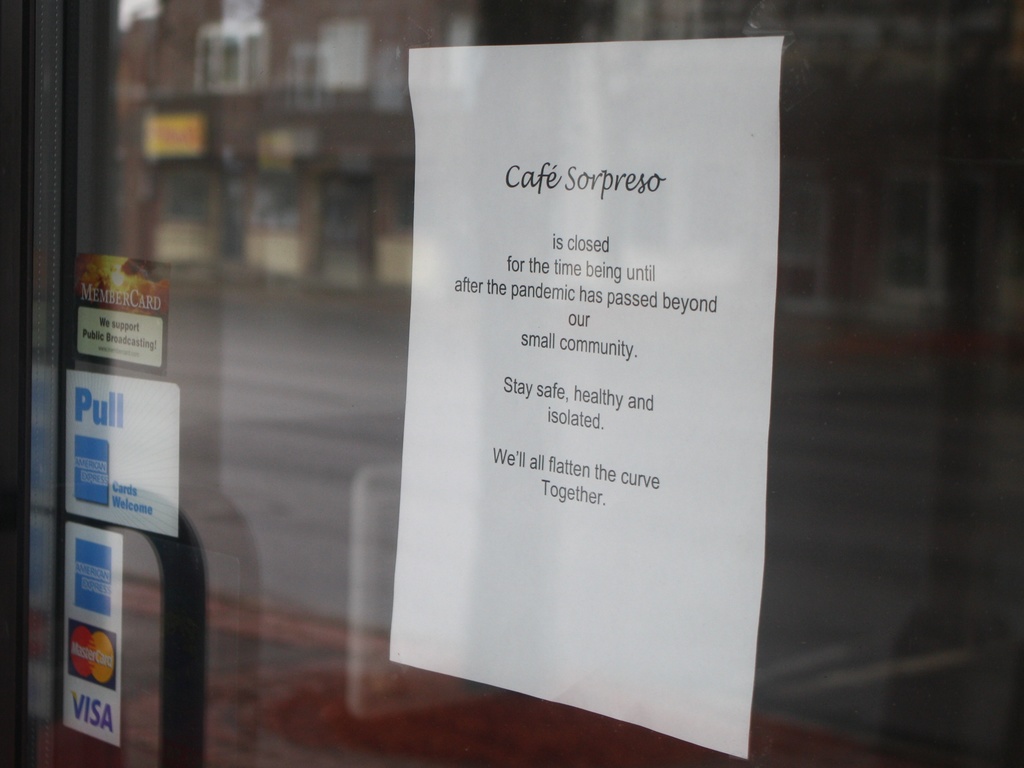 Café Sorpreso
is closed
for the time being until
after the pandemic has passed beyond
our
small community.
Stay safe, healthy and
isolated.
We'll all flatten the curve
Together.
MEMBERCARD
We support
Public Broadcasting!
Pull
AMERICAN
EXPRESS
Cards
Welcome
AMERICAN
EXPRESS
MasterCard
VISA